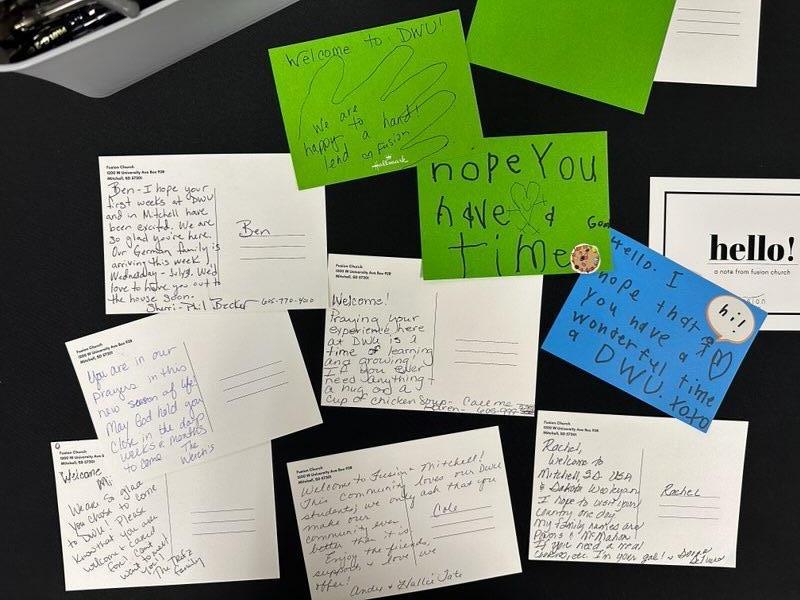 Welcome to DWU!
We are
happy to
lend a hand!
Fusion
Hallmark
hope You
have a Good
time
Fusion Church
1200 W University Ave Box 928
Mitchell, SD 57301
Ben - I hope your
first weeks at DWU
and in Mitchell have
been excited. We are
so glad you're here.
Our German family is
arriving this week
Wednesday - July 9. We'd
love to have you out to
the house soon.
Sherri + Phil Becker 605-770-
Ben
hello!
a note from fusion church
fusion
Hello. I
hope that
you have a
wonderful time
a DWU. xoxo
hi!
Fusion Church
1200 W University Ave Box 928
Mitchell, SD 57301
Welcome!
Praying your
experience here
at DWU is a
time of learning
and growing!
If you ever
need anything -
a hug or a
cup of chicken soup - Call me
Karen - 605-999-
Fusion Church
1200 W University Ave Box 928
Mitchell, SD 57301
You are in our
prayers in this
new season of life!
May God hold you
close in the days
weeks & months
to come The
Fusion Church
1200 W University Ave Box 928
Mitchell, SD 57301
Welcome
We are so glad
you chose to come
to DWU! Please
know that you are
welcome & cared
for! Can't
wait to meet
you! The
Family
Fusion Church
1200 W University Ave Box 928
Mitchell, SD 57301
Welcome to Fusion & Mitchell!
This community loves our DWU
students; we only ask that you
make our
community even
better than it is.
Enjoy the friends,
support & love we
offer!
Andy & Hallie Tate
Cole
Fusion Church
1200 W University Ave Box 928
Mitchell, SD 57301
Rachel,
Welcome to
Mitchell SD USA
& Dakota Wesleyan
I hope to visit your
country one day
My family names are
& McMahon
If you need a meal
I'm your gal!
Rachel